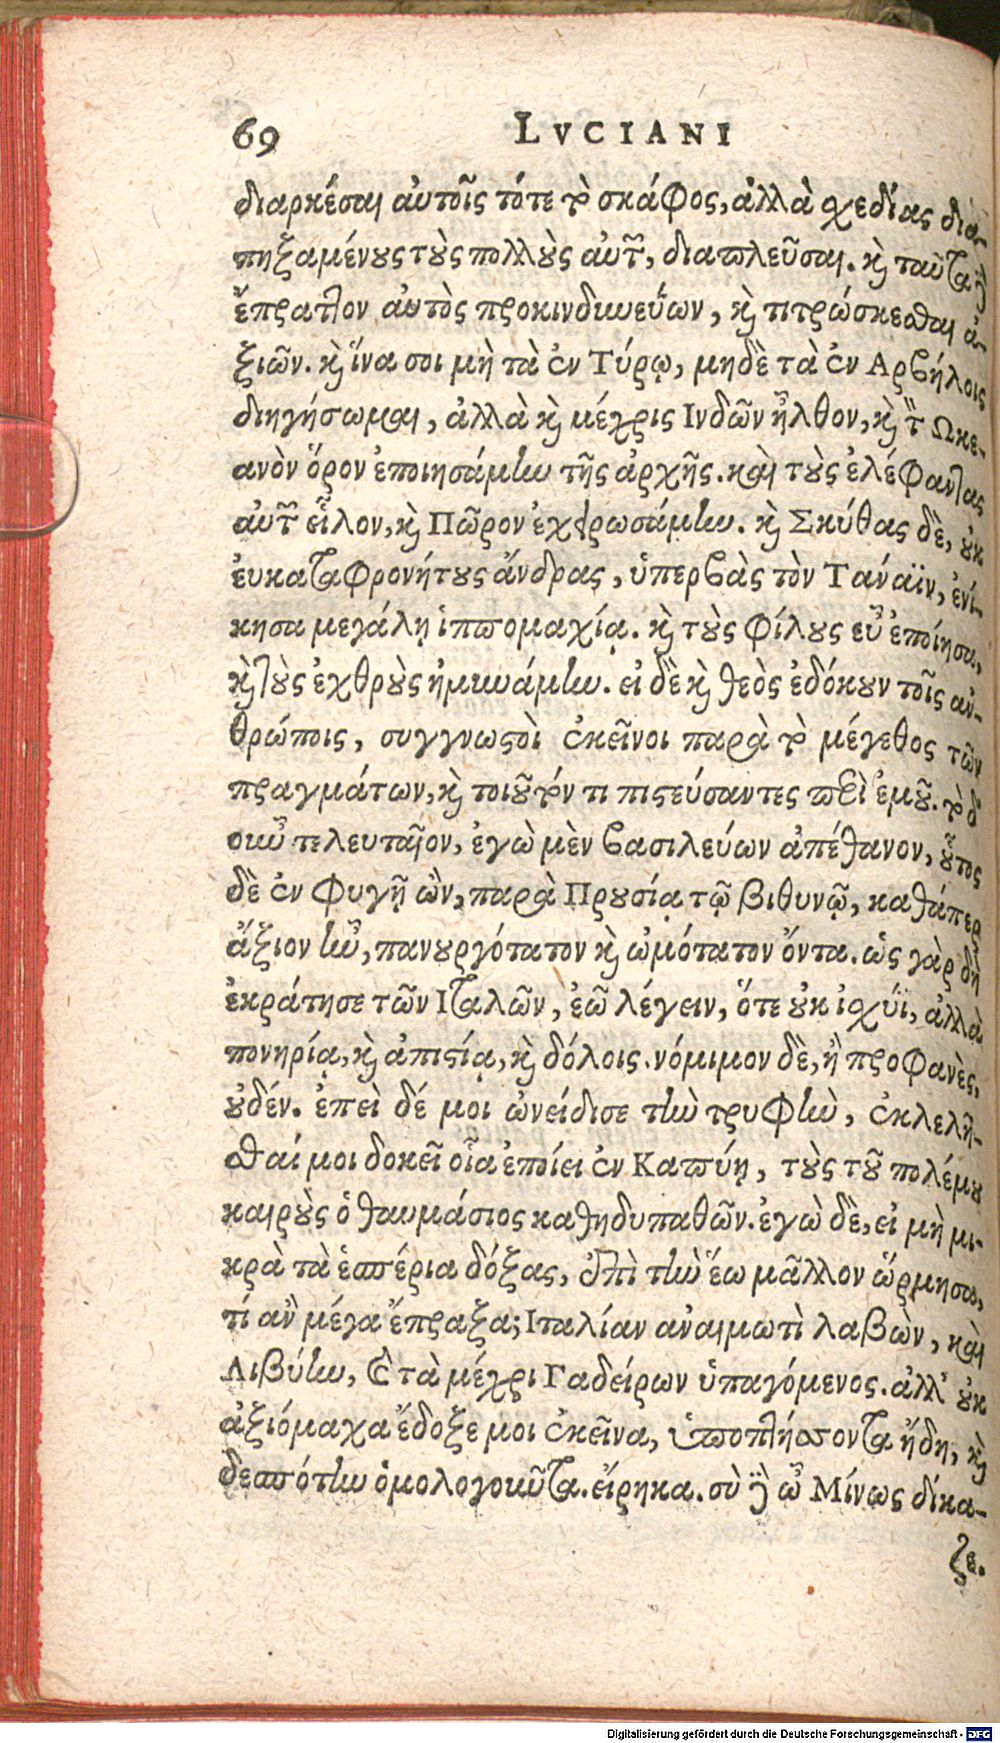 69 LVCIANI
διαρκέσαι αὐτοῖς τότε τὸ σκάφος, ἀλλὰ σχεδίας δια-
πηξαμένους τοὺς πολλοὺς αὐτῶν, διαπλεῦσαι. καὶ ταῦτα
ἔπραττον αὐτὸς προκινδυνεύων, καὶ τιτρώσκεσθαι ἀ-
ξιῶν. καὶ ἵνα σοι μὴ τὰ ἐν Τύρῳ, μηδὲ τὰ ἐν Αρβήλοις
διηγήσωμαι, ἀλλὰ καὶ μέχρις Ινδῶν ἦλθον, καὶ τὸν Ωκε-
ανὸν ὅρον ἐποιησάμην τῆς ἀρχῆς. καὶ τοὺς ἐλέφαντας
αὐτῶν εἷλον, καὶ Πῶρον ἐχειρωσάμην. καὶ Σκύθας δὲ, οὐκ
ἐυκαταφρονήτους ἄνδρας, ὑπερβὰς τὸν Τανάϊν, ἐνί-
κησα μεγάλῃ ἱππομαχίᾳ. καὶ τοὺς φίλους εὖ ἐποίησα,
καὶ τοὺς ἐχθροὺς ἠμυνάμην. εἰ δὲ καὶ θεὸς ἐδόκουν τοῖς ἀν-
θρώποις, συγγνωστοὶ ἐκεῖνοι παρὰ τὸ μέγεθος τῶν
πραγμάτων, καὶ τοιοῦτόν τι πιστεύσαντες περὶ ἐμοῦ. τὸ δ'
οὖν τελευταῖον, ἐγὼ μὲν βασιλεύων ἀπέθανον, οὗτος
δὲ ἐν φυγῇ ὢν, παρὰ Προυσίᾳ τῷ βιθυνῷ, καθάπερ
ἄξιον ἦν, πανουργότατον καὶ ὠμότατον ὄντα. ὡς γὰρ δὴ
ἐκράτησε τῶν Ιταλῶν, ἐῶ λέγειν, ὅτε οὐκ ἰσχύϊ, ἀλλὰ
πονηρίᾳ, καὶ ἀπιστίᾳ, καὶ δόλοις. νόμιμον δὲ, ἢ προφανὲς,
οὐδέν. ἐπεὶ δέ μοι ὠνείδισε τὴν τρυφὴν, ἐκλελῆ-
σθαί μοι δοκεῖ οἷα ἐποίει ἐν Καπύῃ, τοὺς τοῦ πολέμου
καιροὺς ὁ θαυμάσιος καθηδυπαθῶν. ἐγὼ δὲ, εἰ μὴ μι-
κρὰ τὰ ἑσπέρια δόξας, ἐπὶ τὴν ἕω μᾶλλον ὥρμησα,
τί ἂν μέγα ἔπραξα; Ιταλίαν ἀναιμωτὶ λαβὼν, καὶ
Λιβύην, καὶ τὰ μέχρι Γαδείρων ὑπαγόμενος. ἀλλ' οὐκ
ἀξιόμαχα ἔδοξε μοι ἐκεῖνα, ὑποπτήσσοντα ἤδη, καὶ
δεσπότην ὁμολογοῦντα. εἴρηκα. σὺ δὲ ὦ Μίνως δίκα-
ζε.
Digitalisierung gefördert durch die Deutsche Forschungsgemeinschaft - DFG